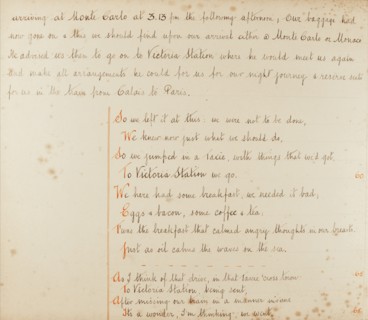 arriving at Monte Carlo at 3.13 pm the following afternoon; Our baggage had
now gone on & this we should find upon our arrival either @ Monte Carlo or Monaco
He advised us then to go on to Victoria Station where he would meet us again
And make all arrangements he could for us for our night journey & reserve seats
for us in the train from Calais to Paris.
So we left it at this; we were not to be done,
We knew now just what we should do,
So we jumped in a Taxie, with things that we'd got,
To Victoria Station we go.
60
We here had some breakfast, we needed it bad,
Eggs & bacon, some coffee & tea.
'Twas the breakfast that calmed angry thoughts in our breasts
Just as oil calms the waves on the sea.
As I think of that drive, in that taxie
To Victoria Station, being sent,
After missing our train in a manner
It's a wonder, I'm thinking, we went.